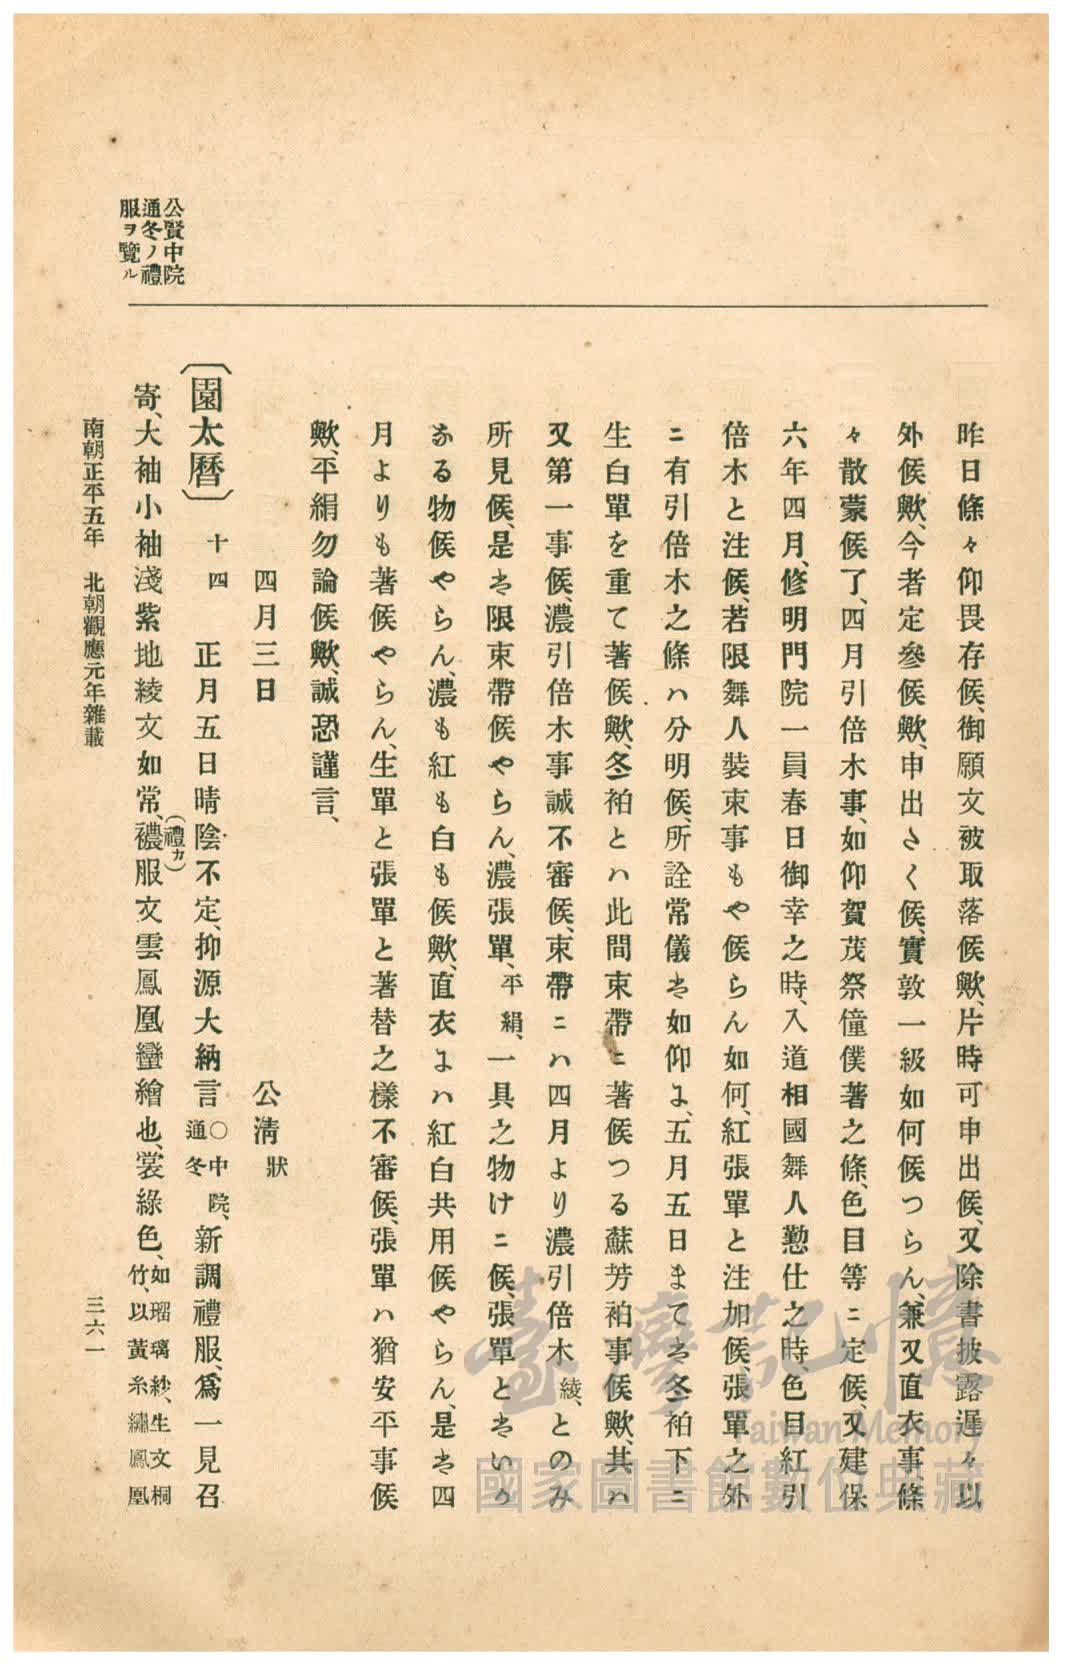 公賢中院
通冬ノ禮
服ヲ覽ル
昨日條々仰畏存候、御願文被取落候歟、片時可申出候、又除書披露遲々以
外候歟、今者定參候歟、申出さく候、實敦一級如何候つらん、兼又直衣事條
々散蒙候了、四月引倍木事、如仰賀茂祭僮僕著之條、色目等ニ定候、又建保
六年四月、修明門院一員春日御幸之時、入道相國舞人懃仕之時、色目紅引
倍木と注候、若限舞人裝束事もや候らん如何、紅張單と注加候、張單之外
ニ有引倍木之條ハ分明候、所詮常儀ハ如仰よ、五月五日まてハ冬袙下ニ
生白單を重て著候歟、冬袙とハ此間束帶ニ著候つる蘇芳袙事候歟、其ハ
又第一事候、濃引倍木事誠不審候、束帶ニハ四月より濃引倍木綾、とのみ
所見候、是ハ限束帶候やらん、濃張單、平絹、一具之物けニ候、張單とハいか
なる物候やらん、濃も紅も白も候歟、直衣よハ紅白共用候やらん、是ハ四
月よりも著候やらん、生單と張單と著替之樣不審候、張單ハ猶安平事候
歟、平絹勿論候歟、誠恐謹言、
四月三日 公淸狀
〔園太曆〕 十四 正月五日晴陰不定、抑源大納言○中院、通冬新調禮服、爲一見召
寄、大袖小袖淺紫地綾文如常、襛(禮カ)服文雲鳳凰蠻繪也、裳綠色、如瑠璃紗、生文桐竹、以黃糸繡鳳凰
南朝正平五年 北朝觀應元年雜載
三六一
臺灣記憶
Taiwan Memory
國家圖書館數位典藏